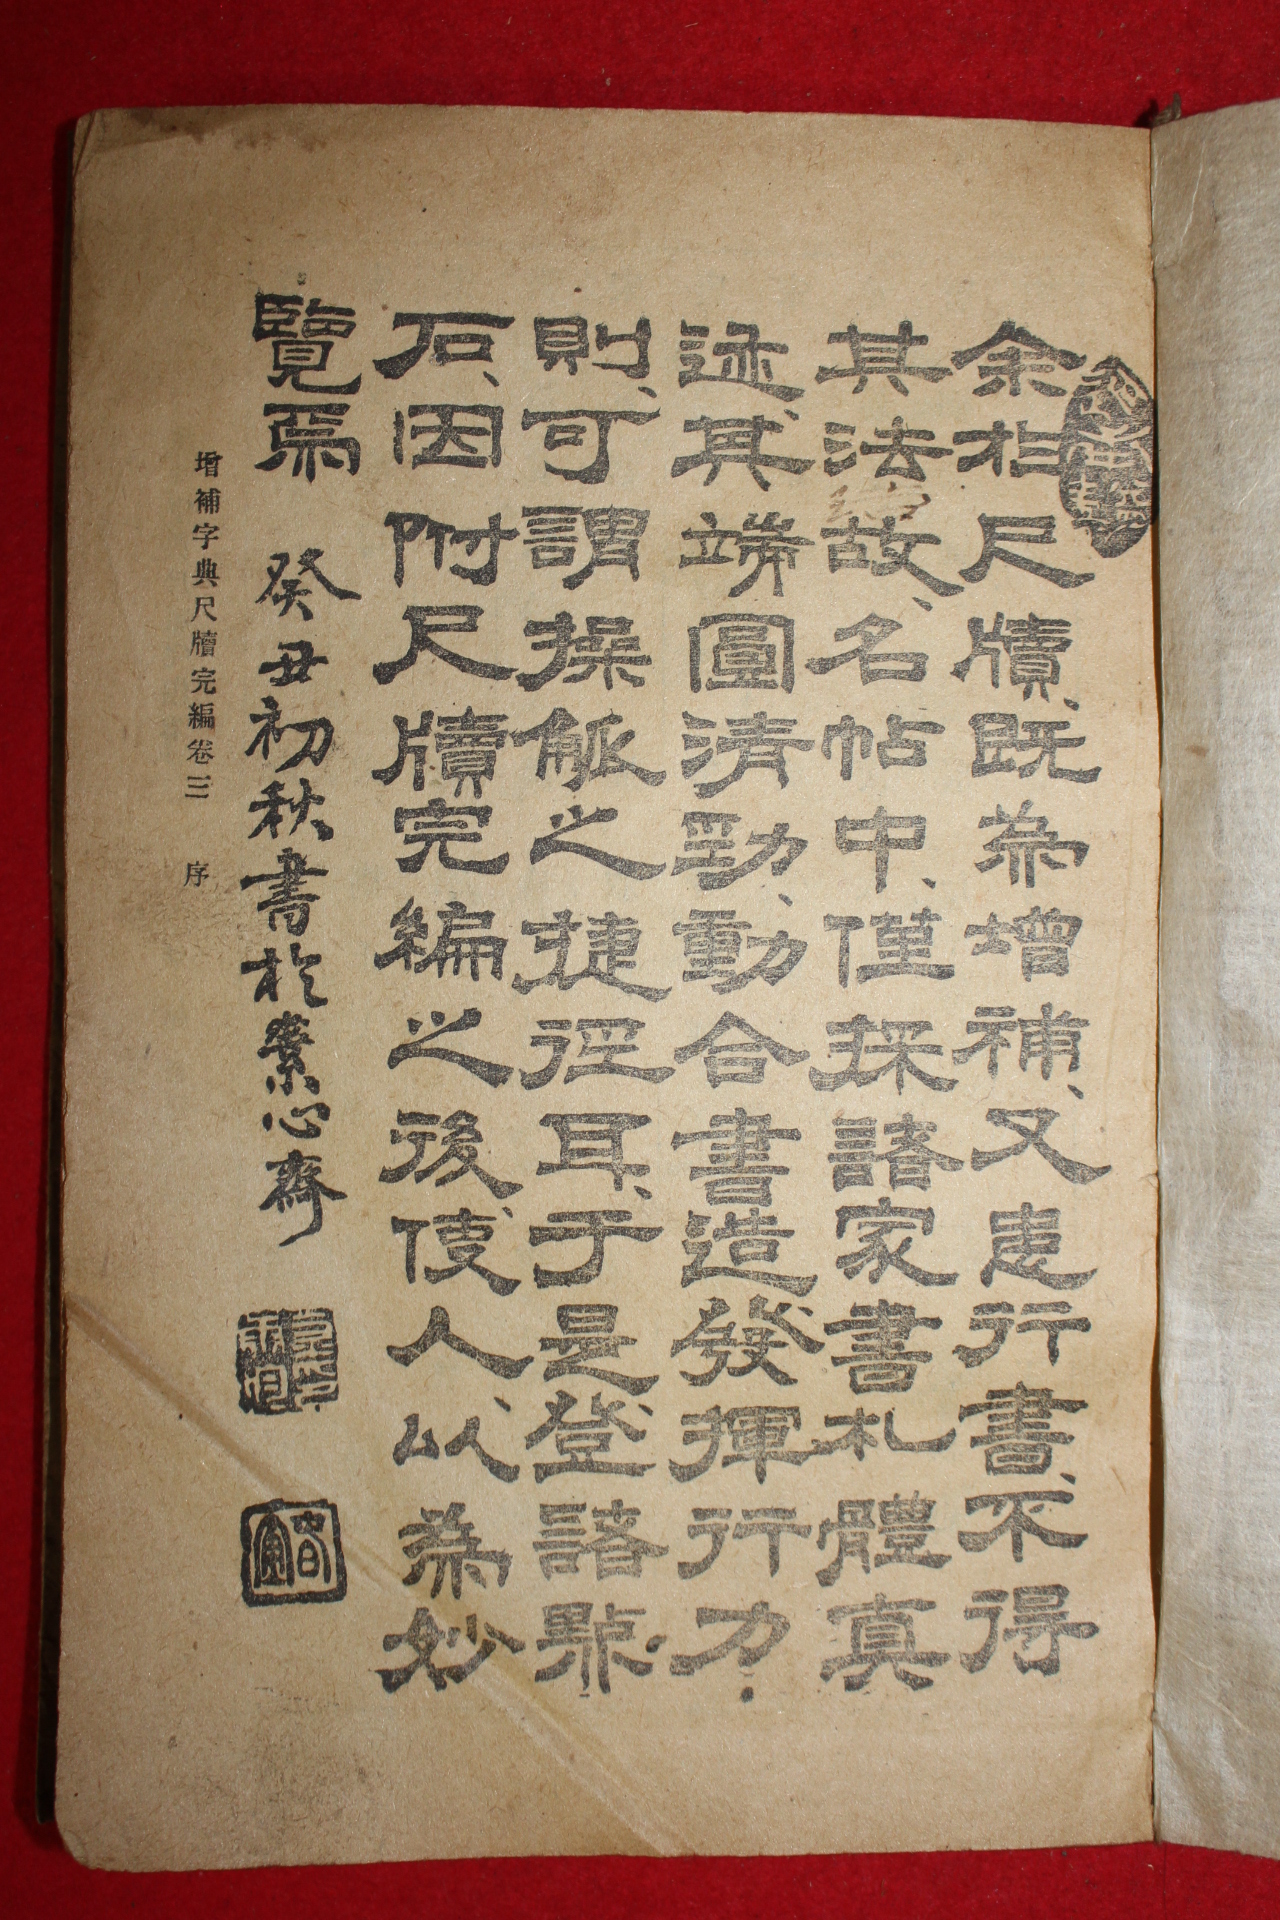 余於尺牘、既為增補、又患行書、不得
其法故、名帖中、僅採諸家書札體真
迹、其端圓清勁、動合書造發揮行力、
則、可謂操觚之捷徑耳、于是、登諸點
石、因附尺牘完編之後、使人、以為妙
覽焉 癸丑初秋書於素心齋
增補字典尺牘完編卷三 序